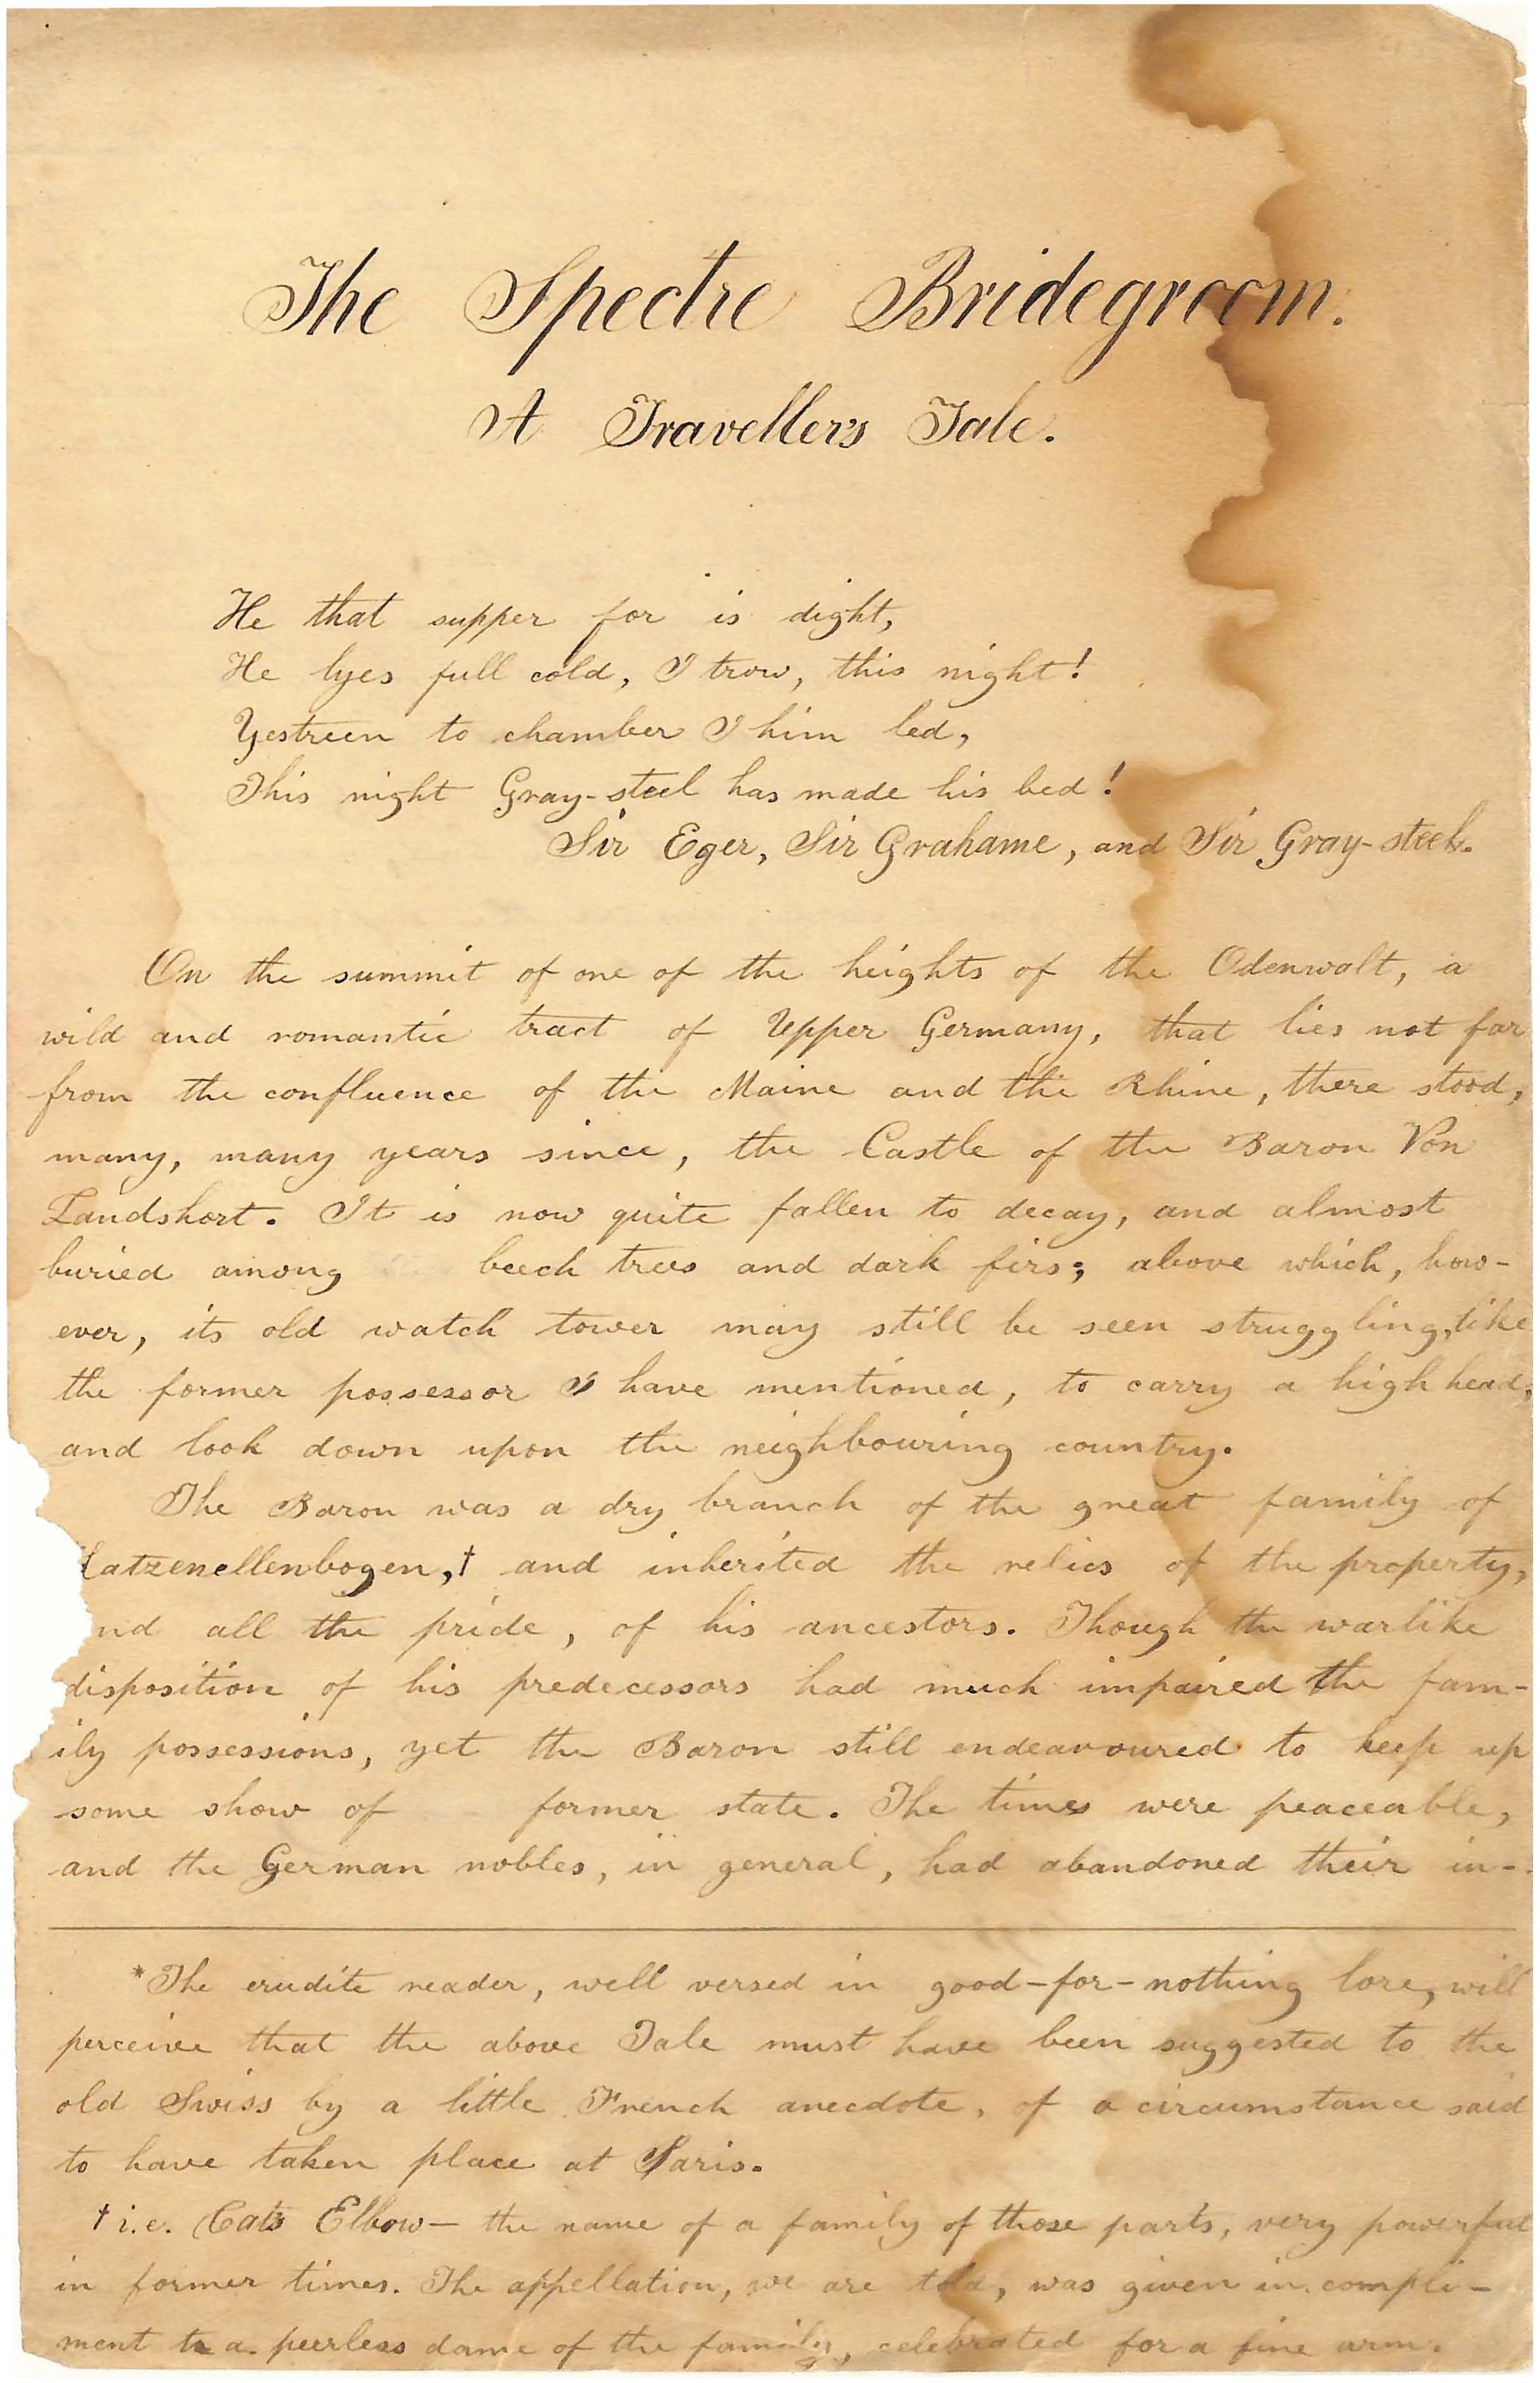 The Spectre Bridegroom.
A Traveller's Tale.
He that supper for is dight,
He lyes full cold, I trow, this night!
Yestreen to chamber I him led,
This night Gray-steel has made his bed!
Sir Eger, Sir Grahame, and Sir Gray-steel.
On the summit of one of the heights of the Odenwalt, a
wild and romantic tract of Upper Germany, that lies not far
from the confluence of the Maine and the Rhine, there stood,
many, many years since, the Castle of the Baron Von
Landshort. It is now quite fallen to decay, and almost
buried among beech trees and dark firs; above which, how-
ever, its old watch tower may still be seen struggling, like
the former possessor I have mentioned, to carry a high head,
and look down upon the neighbouring country.
The Baron was a dry branch of the great family of
Katzenellenbogen,† and inherited the relics of the property,
nd all the pride, of his ancestors. Though the warlike
disposition of his predecessors had much impaired the fam-
ily possessions, yet the Baron still endeavoured to keep up
some show of former state. The times were peaceable,
and the German nobles, in general, had abandoned their in-
*The erudite reader, well versed in good-for-nothing lore, will
perceive that the above Tale must have been suggested to the
old Swiss by a little French anecdote, of a circumstance said
to have taken place at Paris.
† i.e. Cats Elbow — the name of a family of those parts, very powerful
in former times. The appellation, we are told, was given in compli-
ment to a peerless dame of the family, celebrated for a fine arm.